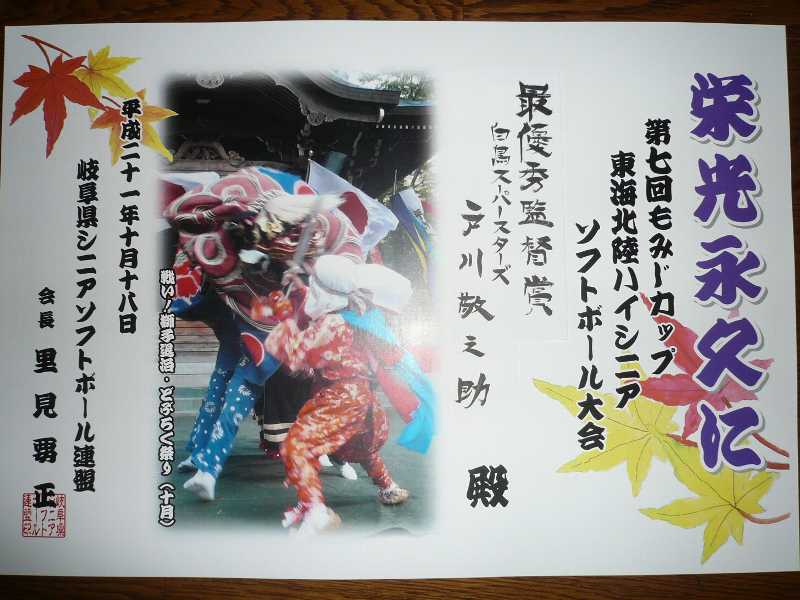 栄光永久に
第七回もみじカップ
東海北陸ハイシニア
ソフトボール大会
最優秀監督賞
白鳥スーパースターズ
戸川敬之助 殿
戦い!獅子退治・どぶろく祭り(十月)
平成二十一年十月十八日
岐阜県シニアソフトボール連盟
会長 里見勇正